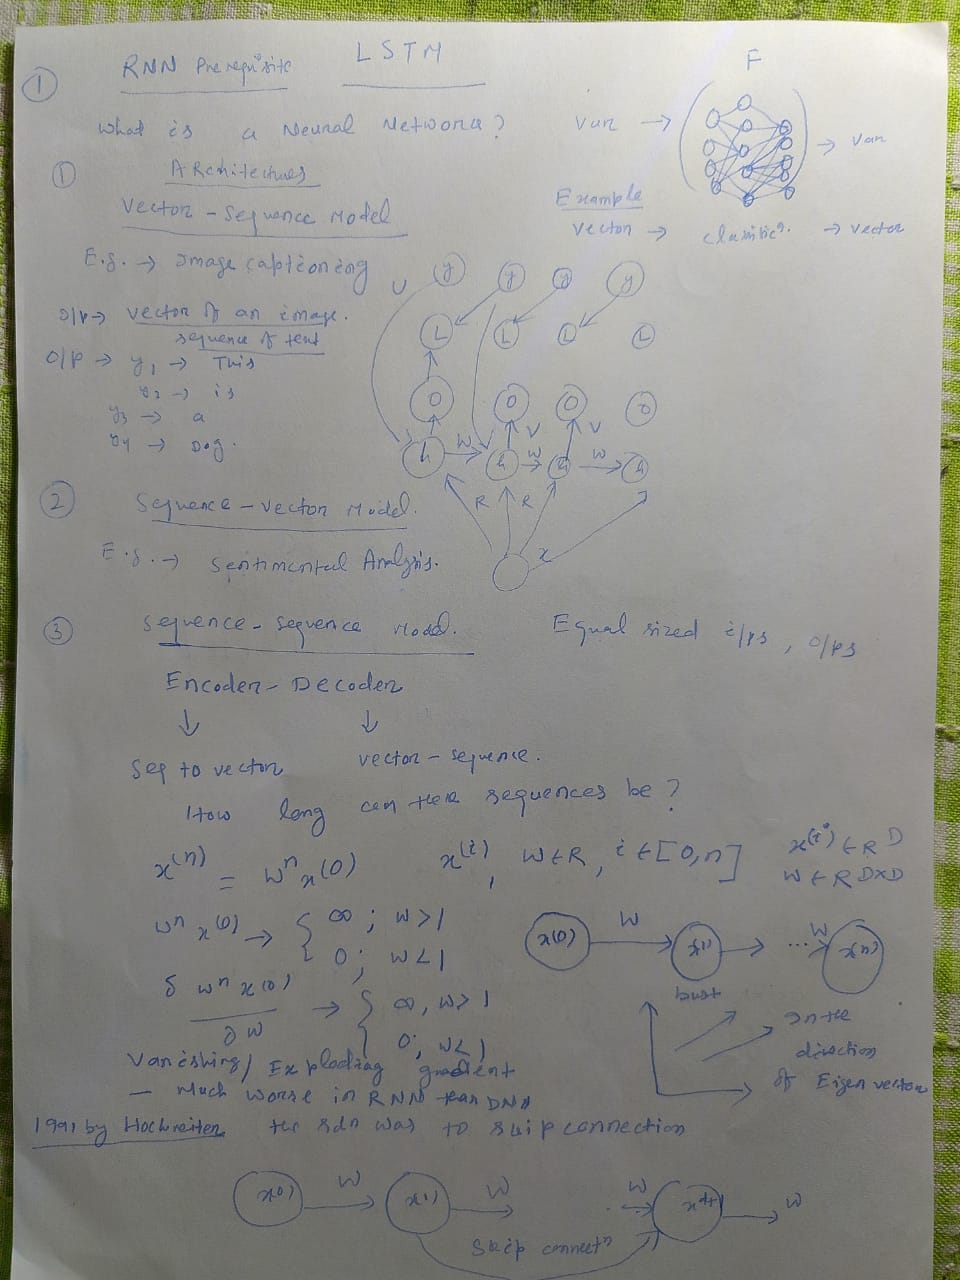 ① RNN Prerequisite LSTM
What is a Neural Network?
Van → ( ) → Van
F
① Architectures
Vector - Sequence Model
Example
Vector → classificn. → vector
E.g. → Image captioning
I/p → vector of an image.
sequence of text
O/p → y1 → This
y2 → is
y3 → a
y4 → Dog.
U y y y y
L L L L
O O O O
V V
h W h W h W h
R R
x
② Sequence - Vector Model.
E.g. → Sentimental Analysis.
③ Sequence - Sequence Model. Equal sized i/ps, o/ps
Encoder - Decoder
↓ ↓
Seq to vector vector - sequence.
How long can these sequences be?
x(n) = Wⁿ x(0) x(i), W ∈ R, i ∈ [0,n] x(i) ∈ R D
W ∈ R D×D
Wⁿ x(0) → { ∞ ; W > 1
0 ; W < 1
x(0) W x(1) → ... W x(n)
δ Wⁿ x(0) / ∂W → { ∞, W > 1
0; W < 1
In the
direction
of Eigen vector
Vanishing / Exploding gradient
— Much worse in RNN than DNN
1991 by Hochreiter the sdn was to skip connection
x(0) W x(1) W W x(d+1 W
Skip connectn